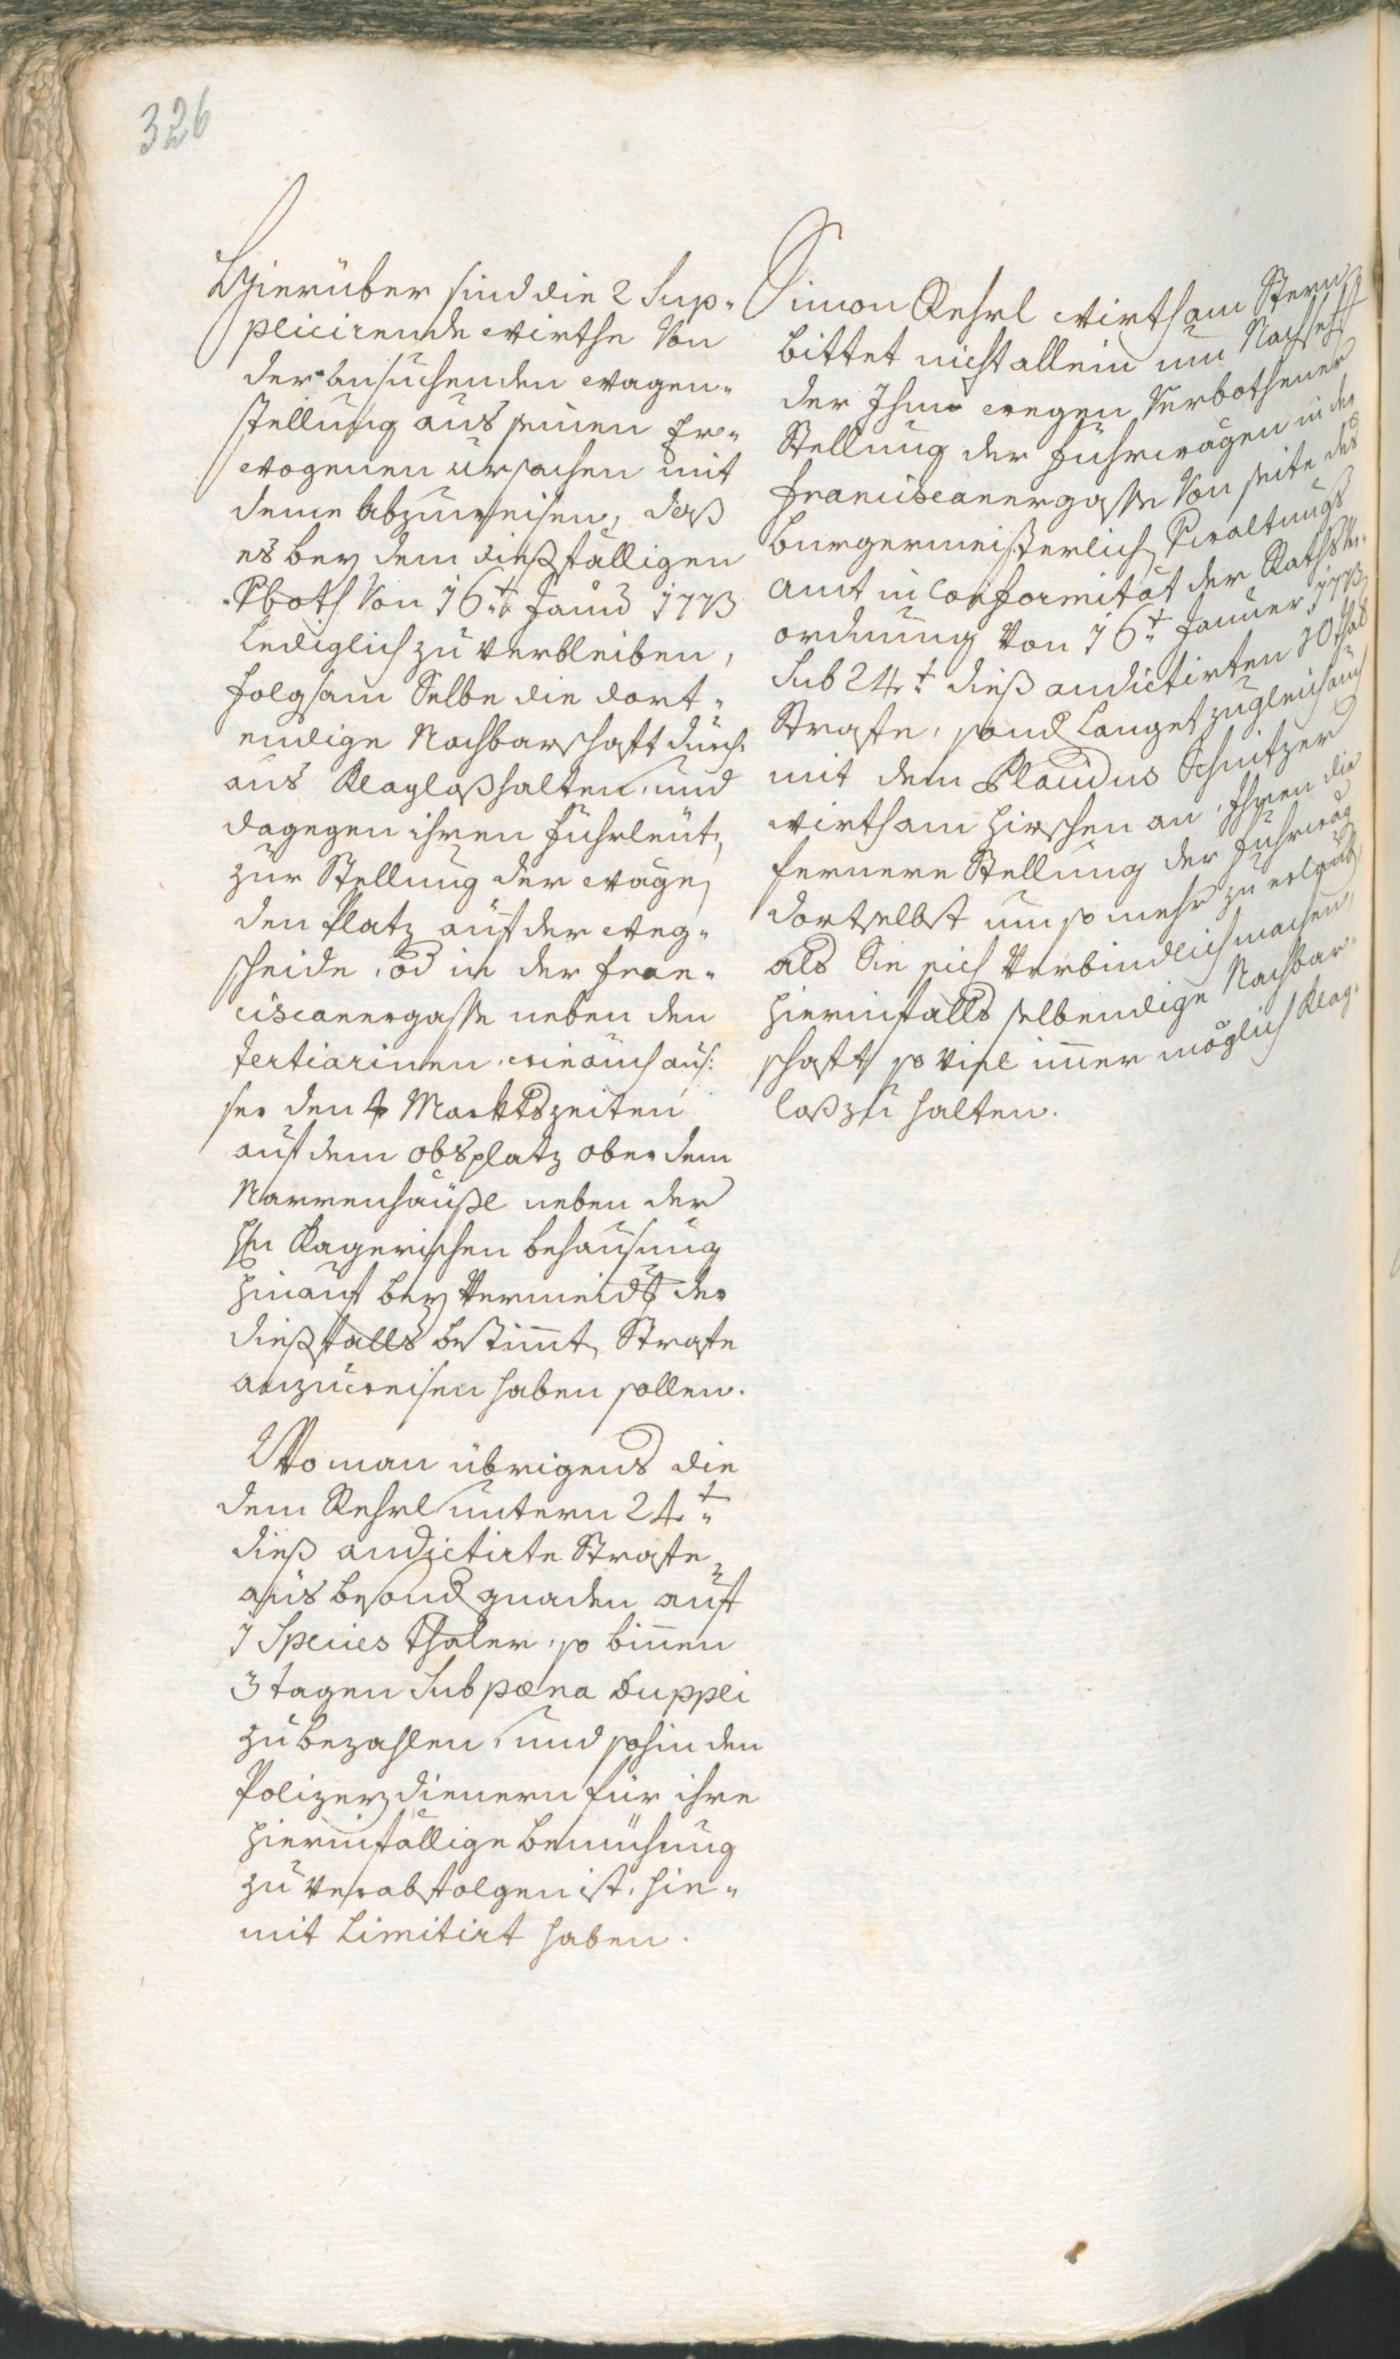 326
Hierüber sind die 2 Sup-
plicirende wirthe von
der ansuchenden wagen-
stellung aus seinen er-
wogenen ursachen mit
deme abzuweisen, daß
es bey dem dießfälligen
Vboth von 16.t Januar 1773
lediglich zu verbleiben,
folgsam Selbe die dort-
endige Nachbarschaft durch-
aus klagloßhalten, und
dagegen ihren fuhrleut,
zur Stellung der wägen,
den Platz auf der weg-
scheide, od in der fran-
ciscanergasse neben den
tertiarinen, wie auch aus-
ser den 4 Marktszeiten
auf dem obsplatz ober dem
Narrenhäußl neben der
H: Kagerischen behausung
hinauf bey vermeidung der
dießfalls bestimt, Strafe
anzuweisen haben sollen.
Wo man übrigens die
dem Kehrl untern 24.t
dieß andictirte Strafe
aus besond gnaden auf
1 Species thaler, so binnen
3 tagen Sub pæna duppli
zu bezahlen, und sohin den
Polizeydienern für ihre
hierinfällige bemühung
zu verabfolgen ist, hie-
mit limitirt haben.
Simon Kehrl wirth am Stern
bittet nicht allein um Nachsicht
der Ihme wegen verbothener
Stellung der fuhrwägen in der
franciscanergasse von seite des
burgermeisterlich, Vwaltungs
amt in Conformität der Raths V-
ordnung von 16.t Januer 1773
Sub 24.t dieß andictirten 10 thal
Strafe, sond langet zugleich auch
mit dem Placidus Schnitzer
wirth am hirschen an, Ihnen die
fernere Stellung der fuhrwäg
dortselbst um so mehr zu erlaub,
als Sie sich verbindlich machen,
hierinfalls selbendige Nachbar-
schaft so viel imer möglich klag-
loß zu halten.